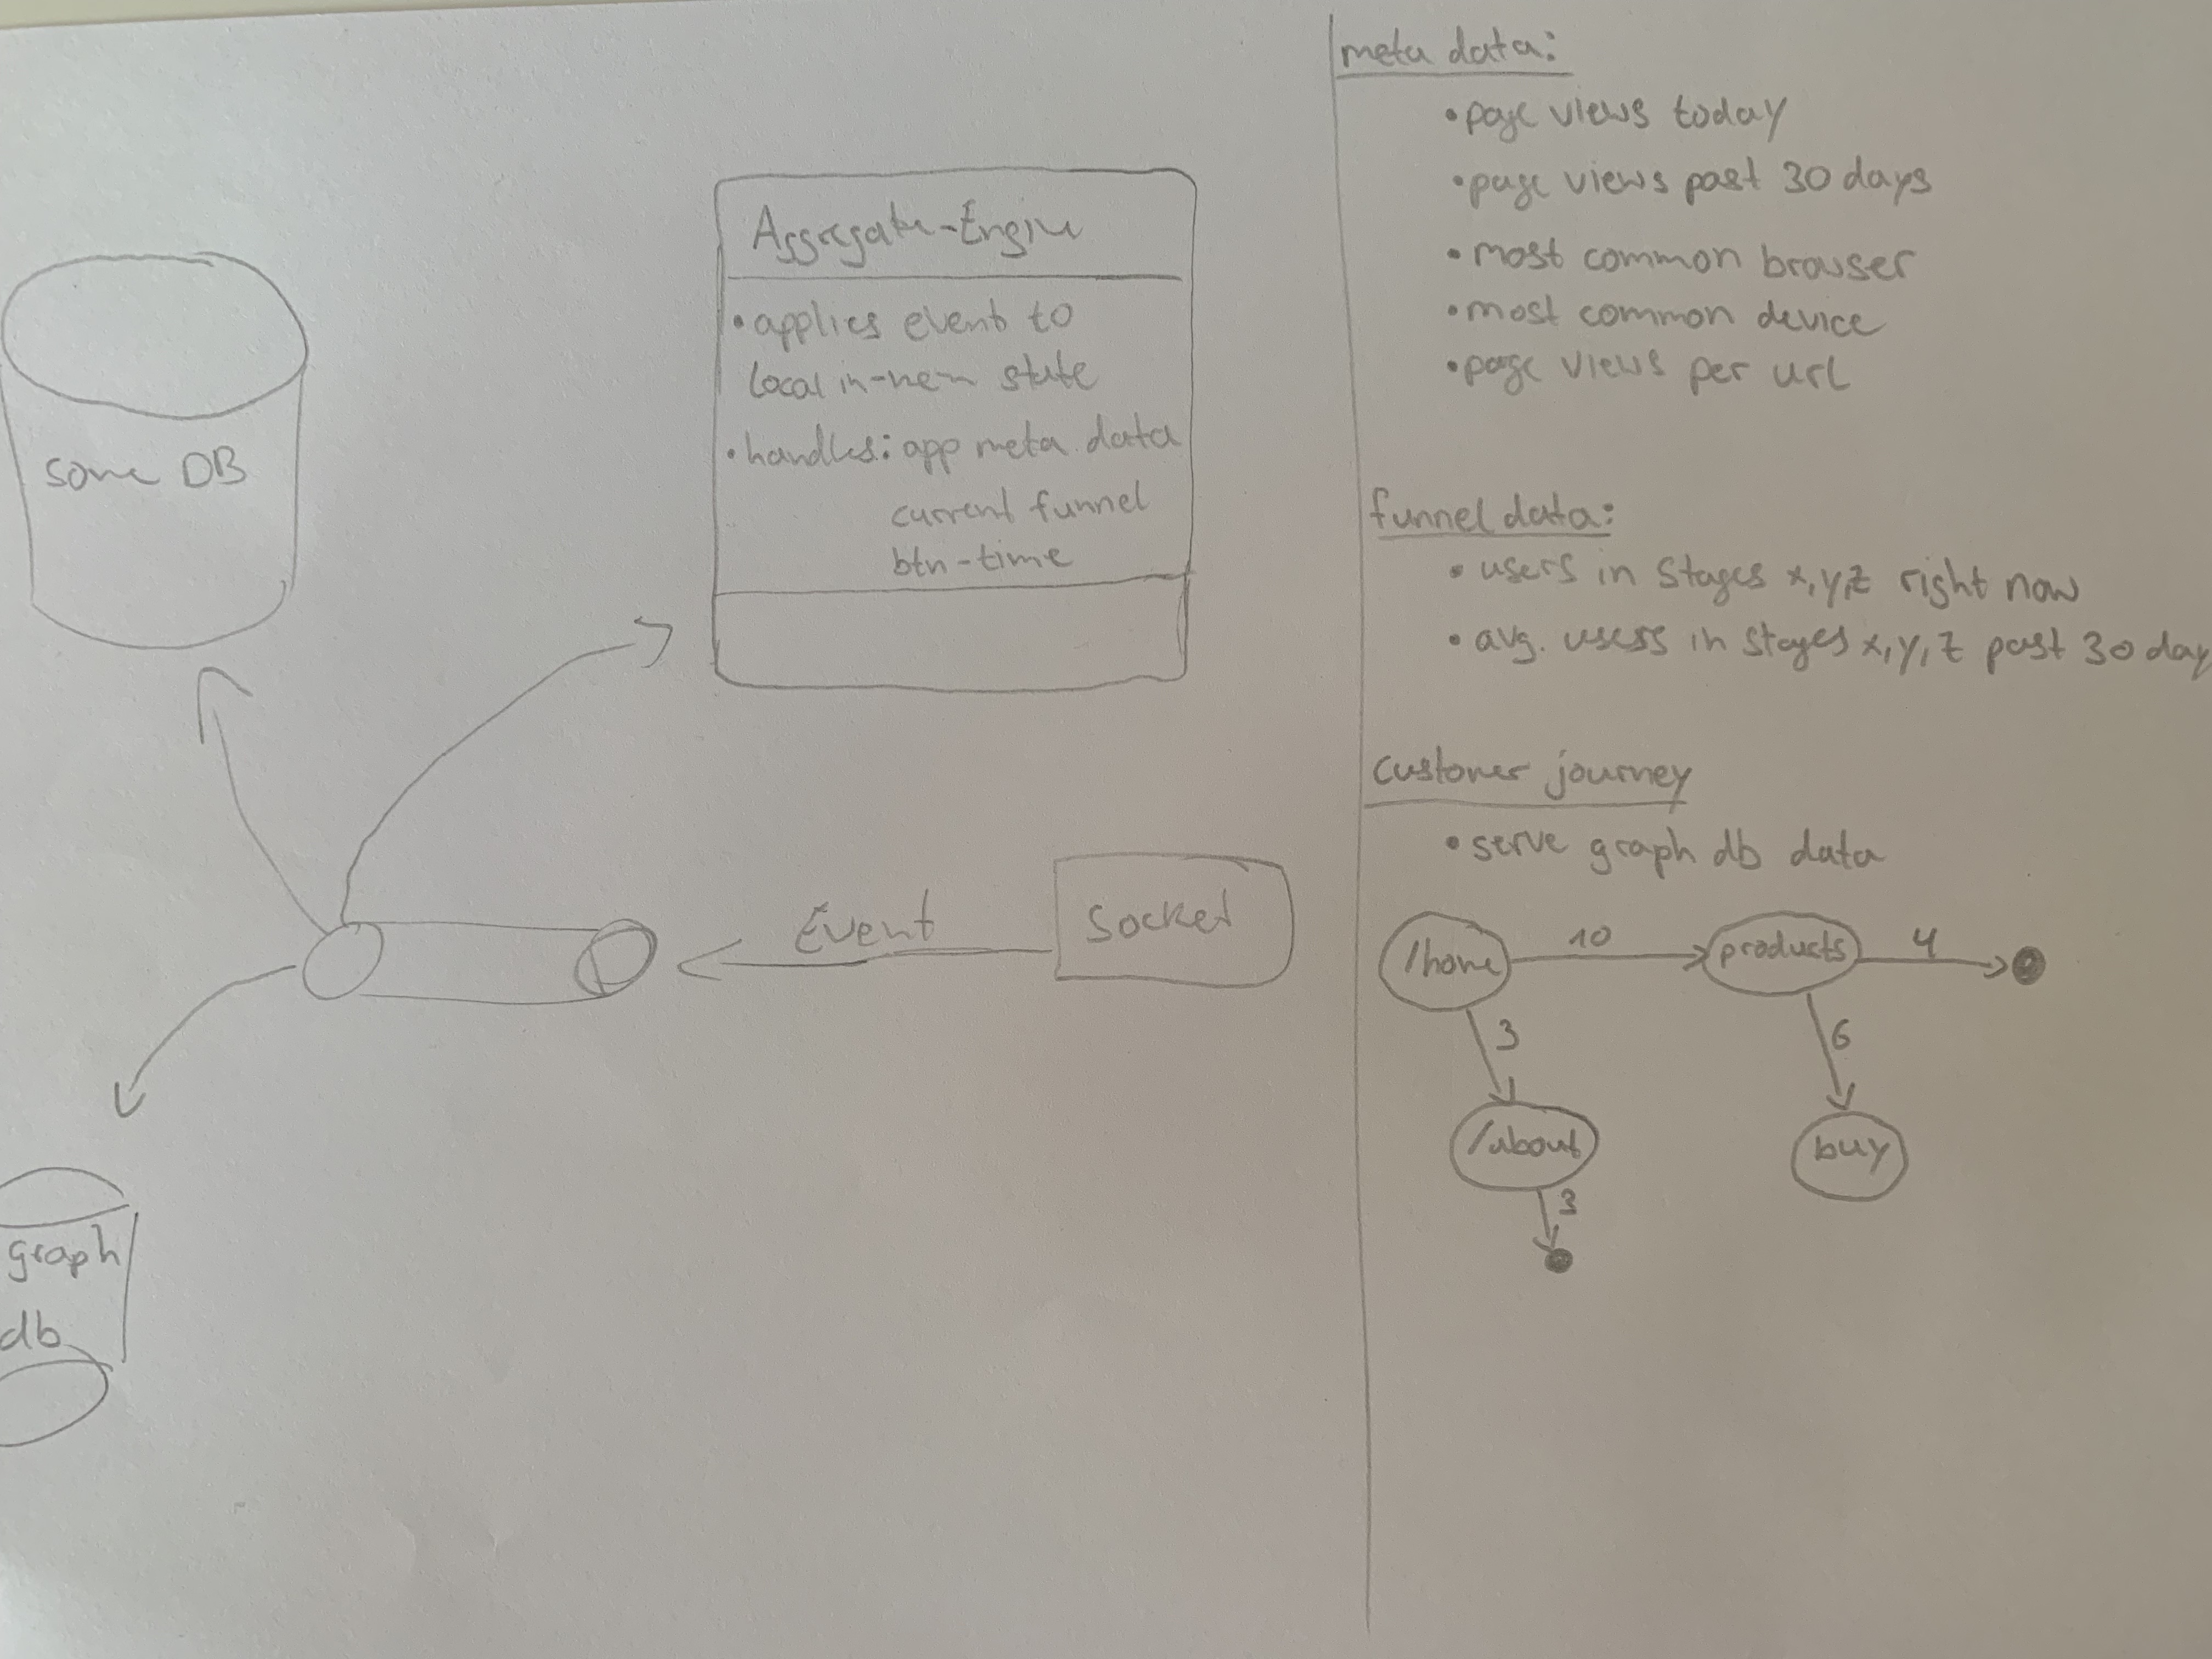 some DB
Aggregate-Engine
• applies event to
local in-mem state
• handles: app meta data
current funnel
btn-time
Event
Socket
graph
db
meta data:
• page views today
• page views past 30 days
• most common browser
• most common device
• page views per url
funnel data:
• users in stages x,y,z right now
• avg. users in stages x,y,z past 30 day
customer journey
• serve graph db data
/home
10
products
4
3
6
/about
buy
3